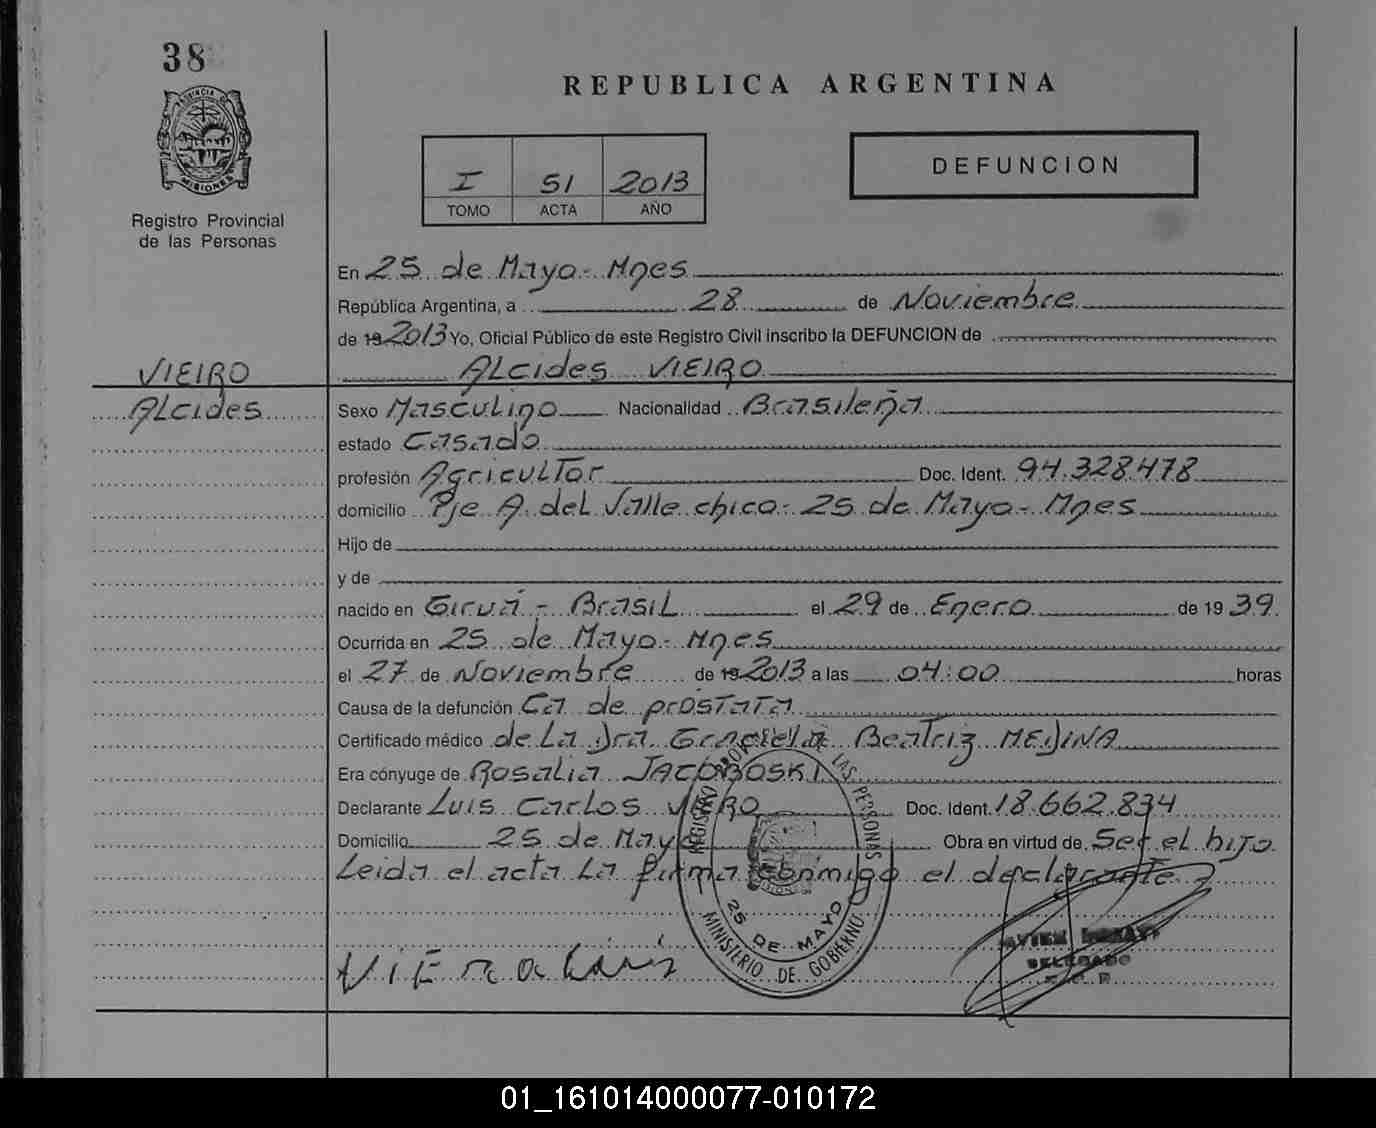 38
PROVINCIA DE
MISIONES
Registro Provincial
de las Personas
REPUBLICA ARGENTINA
I 51 2013
TOMO ACTA AÑO
DEFUNCION
En 25 de Mayo - Mnes
República Argentina, a 28 de Noviembre
de 19 2013 Yo, Oficial Público de este Registro Civil inscribo la DEFUNCION de
VIEIRO
Alcides
Alcides VIEIRO
Sexo Masculino Nacionalidad Brasileña
estado Casado
profesión Agricultor Doc. Ident. 94.328.478
domicilio Pje A. del Valle chico - 25 de Mayo - Mnes
Hijo de
y de
nacido en Giruá - Brasil el 29 de Enero de 19 39
Ocurrida en 25 de Mayo - Mnes
el 27 de Noviembre de 19 2013 a las 04:00 horas
Causa de la defunción Ca de próstata
Certificado médico de La Dra Graciela Beatriz MEDINA
Era cónyuge de Rosalia JACOBOSKI
Declarante Luis Carlos VIEIRO Doc. Ident. 18.662.834
Domicilio 25 de Mayo Obra en virtud de Ser el hijo
Leida el acta La firma conmigo el declarante
REGISTRO PROV. DE LAS PERSONAS
25 DE MAYO
MINISTERIO DE GOBIERNO
VIERO LUIS
DELEGADO
01_161014000077-010172